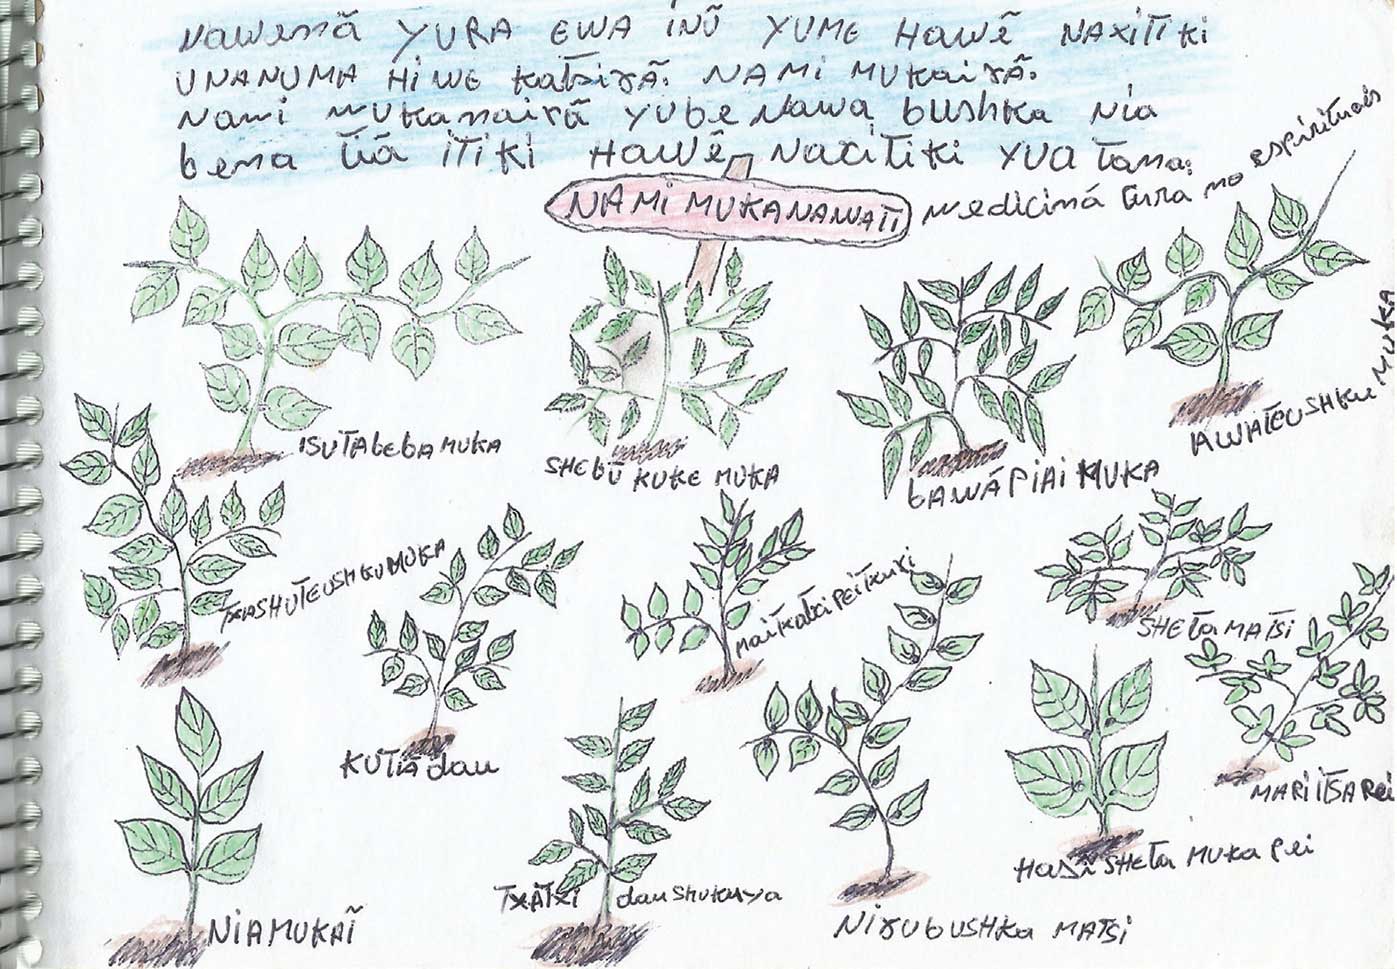 NAWENÃ YURA EWA INŨ YUME HAWẼ NAXITIKI
UNANUMA HIWE Katsirã. NAMI MUKAirã.
Nami mukanairã yube Nawa bushka Nia
bena tiã itiki HAWẼ Naxitiki yua tana:
NAMI MUKANAWATI
medicina tura no espirituais
ISUTABEBA MUKA
SHEBŨ KUKE MUKA
BAWÁ PIAI MUKA
AWATEUSHKU MUKA
TXASHUTEUSHKU MUKA
KUTIÃ dau
maikatxi pei tkuki
SHEta MATSI
MARI ITSA Rei
NIA MUKAĨ
TXATXI dau shukuya
Nixubushka MATSi
Hasĩ SHEta MUKA Pei